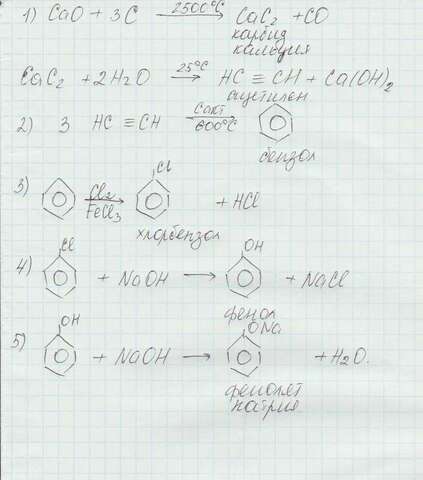 1) CaO + 3C 2500°C → CaC₂ + CO
карбид
кальция
CaC₂ + 2H₂O 25°C → HC ≡ CH + Ca(OH)₂
ацетилен
2) 3 HC ≡ CH Cакт 600°C
бензол
3) Cl₂ FeCl₃ → Cl + HCl
хлорбензол
4) Cl + NaOH → OH + NaCl
фенол
5) OH + NaOH → ONa + H₂O.
фенолят
натрия